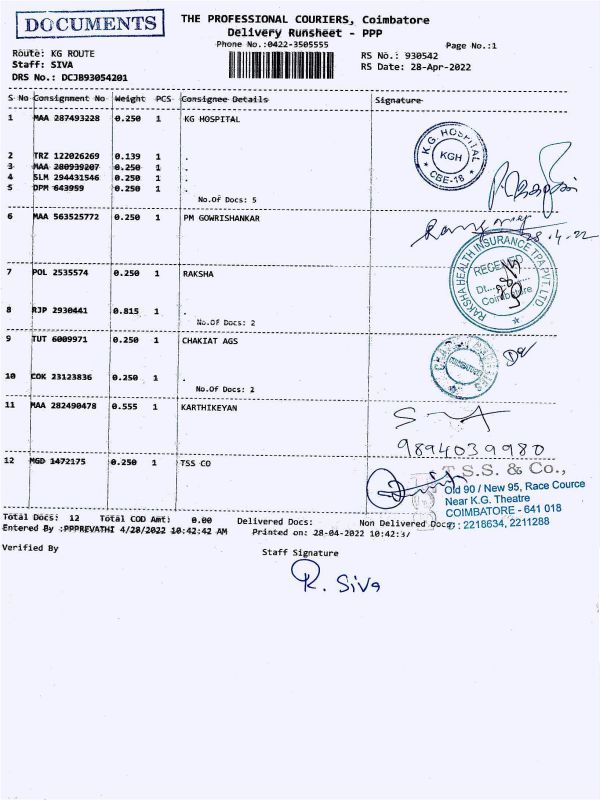 DOCUMENTS
THE PROFESSIONAL COURIERS, Coimbatore
Delivery Runsheet - PPP
Phone No.:0422-3505555
Page No.:1
Route: KG ROUTE
RS No.: 930542
Staff: SIVA
RS Date: 28-Apr-2022
DRS No.: DCJB93054201
S No Consignment No Weight PCS Consignee Details Signature
1 MAA 287493228 0.250 1 KG HOSPITAL
K.G. HOSPITAL
KGH
CBE-18
2 TRZ 122026269 0.139 1 .
3 MAA 280939207 0.250 1 .
4 SLM 294431546 0.250 1 .
5 DPM 643959 0.250 1 .
No.Of Docs: 5
6 MAA 563525772 0.250 1 PM GOWRISHANKAR
28.4.22
7 POL 2535574 0.250 1 RAKSHA
RAKSHA HEALTH INSURANCE TPA PVT. LTD
RECEIVED
Dt.
Coimbatore
8 RJP 2930441 0.815 1 .
No.Of Docs: 2
9 TUT 6009971 0.250 1 CHAKIAT AGS
COIMBATORE
10 COK 23123836 0.250 1 .
No.Of Docs: 2
11 MAA 282490478 0.555 1 KARTHIKEYAN
9894039980
12 MGD 1472175 0.250 1 TSS CO
T.S.S. & Co.,
Old 90 / New 95, Race Cource
Near K.G. Theatre
COIMBATORE - 641 018
: 2218634, 2211288
Total Docs: 12 Total COD Amt: 0.00 Delivered Docs: Non Delivered Docs:
Entered By :PPPREVATHI 4/28/2022 10:42:42 AM Printed on: 28-04-2022 10:42:37
Verified By
Staff Signature
R. Siva